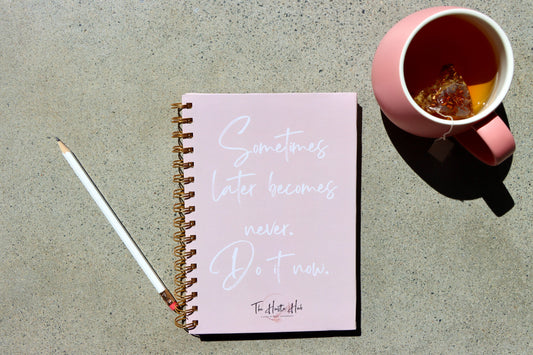 Sometimes
later becomes
never.
Do it now.
The Hustle Hub